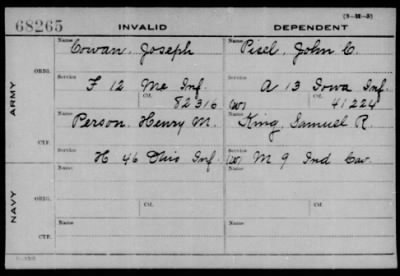 68265 INVALID DEPENDENT (3-111-3)
ARMY
ORIG.
Name Cowan, Joseph Name Pisel, John C.
Service F 12 Me Inf. Service A 13 Iowa Inf
Ctf. 82316 (W) Ctf. 41224
CTF.
Name Person, Henry M. Name King, Samuel R.
Service H 46 Ohio Inf. Service (W) M 9 Ind Cav.
NAVY
ORIG.
Name Name
Service Ctf. Service Ctf.
CTF.
Name Name
Service Service